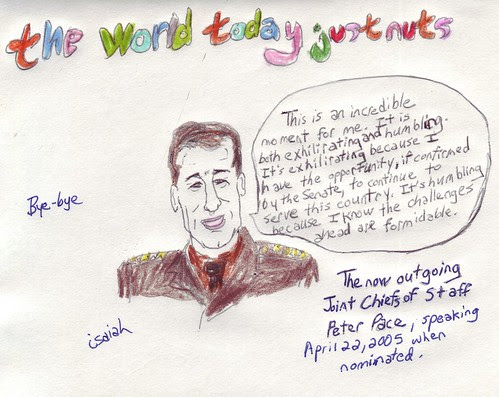 the world today just nuts
This is an incredible
moment for me. It is
both exhilirating and humbling.
It's exhilirating because I
have the opportunity, if confirmed
by the Senate, to continue to
serve this country. It's humbling
because I know the challenges
ahead are formidable.
Bye-bye
The now outgoing
Joint Chiefs of Staff
Peter Pace, speaking
April 22, 2005 when
nominated.
isaiah